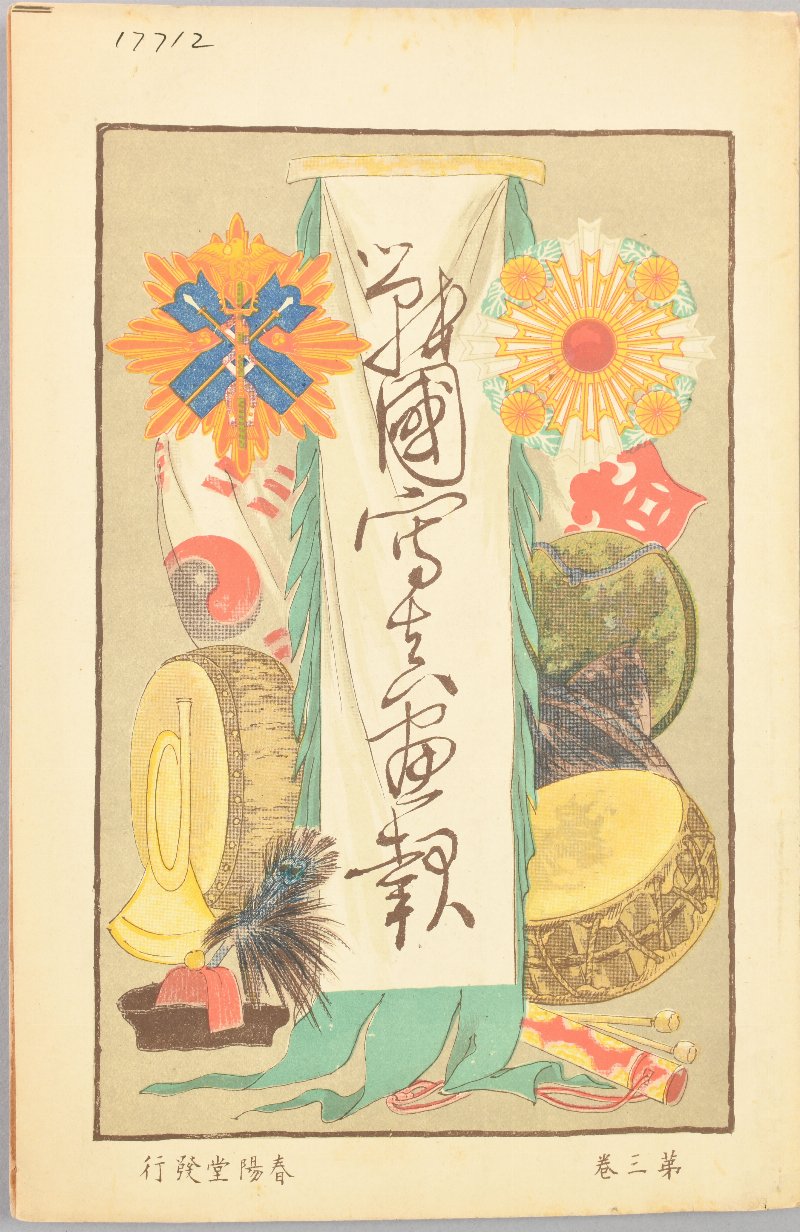 17712
戦國寫真画報
第三巻
春陽堂發行